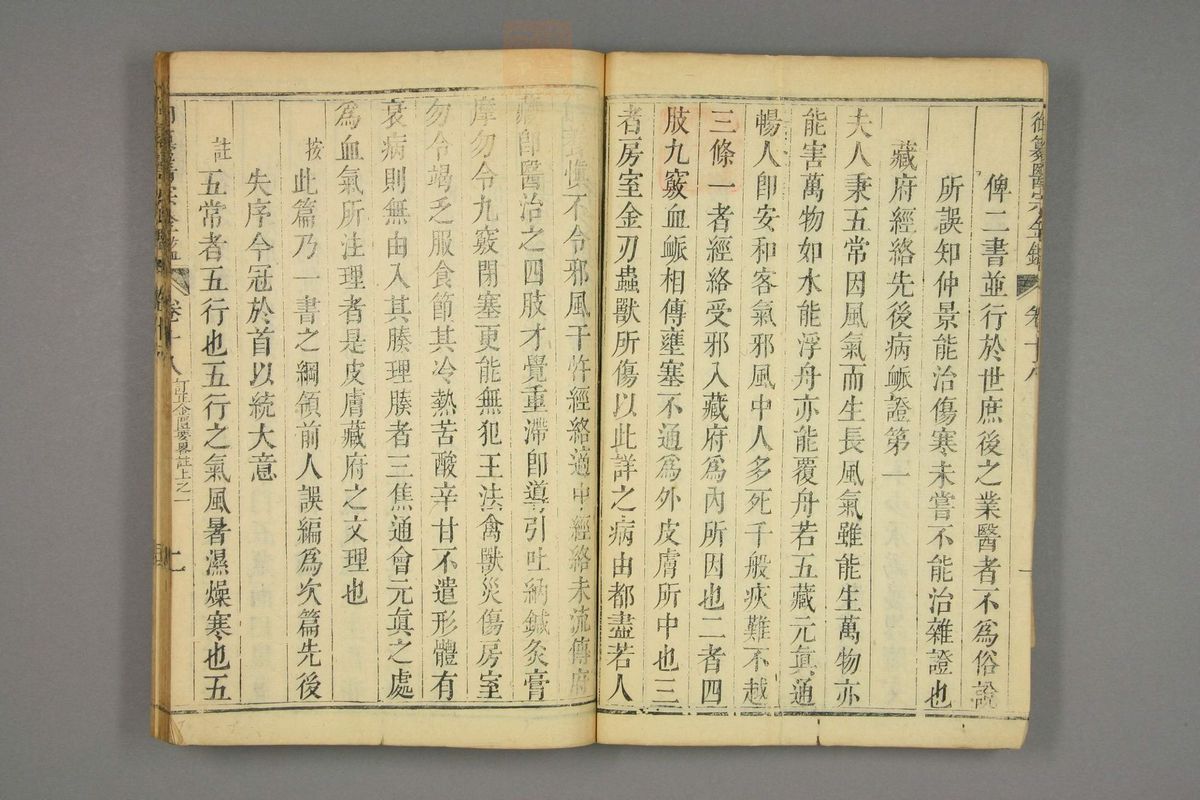 御纂醫宗金鑑 卷十八
俾二書並行於世庶後之業醫者不爲俗說
所誤知仲景能治傷寒未嘗不能治雜證也
藏府經絡先後病脈證第一
夫人秉五常因風氣而生長風氣雖能生萬物亦
能害萬物如水能浮舟亦能覆舟若五藏元眞通
暢人卽安和客氣邪風中人多死千般疢難不越
三條一者經絡受邪入藏府爲內所因也二者四
肢九竅血脈相傳壅塞不通爲外皮膚所中也三
者房室金刃蟲獸所傷以此詳之病由都盡若人
能養愼不令邪風干忤經絡適中經絡未流傳府
藏卽醫治之四肢才覺重滯卽導引吐納鍼灸膏
摩勿令九竅閉塞更能無犯王法禽獸災傷房室
勿令竭乏服食節其冷熱苦酸辛甘不遣形體有
衰病則無由入其腠理腠者三焦通會元眞之處
爲血氣所注理者是皮膚藏府之文理也
按此篇乃一書之綱領前人誤編爲次篇先後
失序今冠於首以統大意
註五常者五行也五行之氣風暑濕燥寒也五
卷十八 訂正金匱要畧註上之一 七